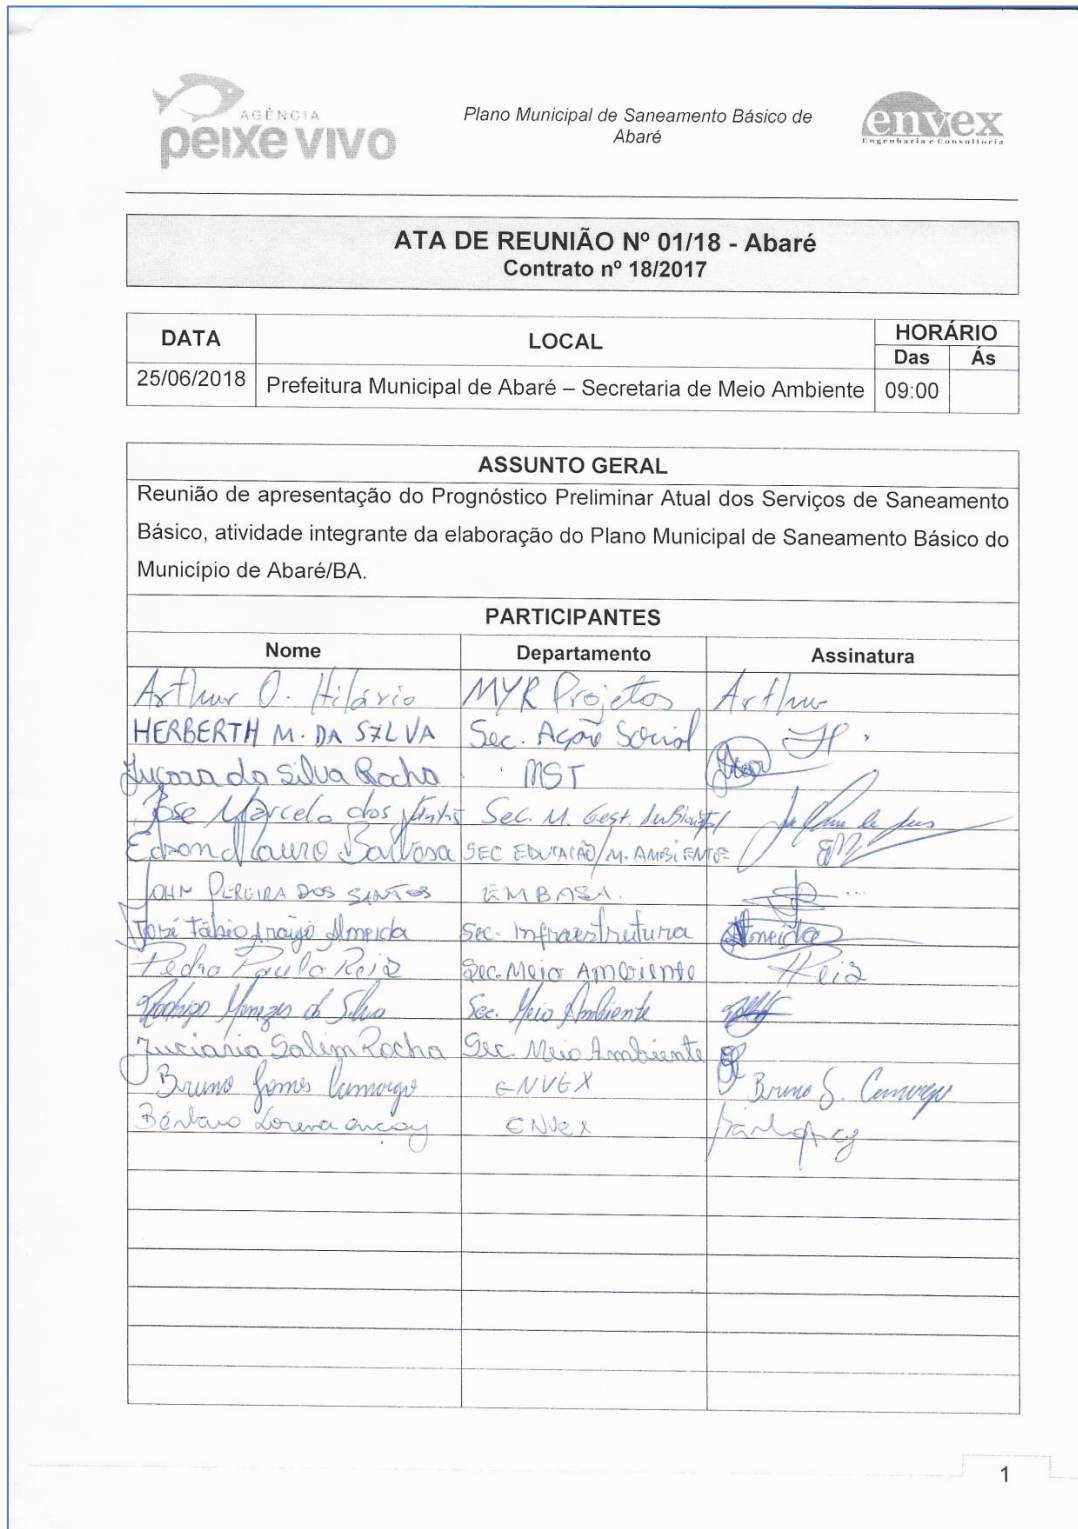 AGÊNCIA
peixe vivo
Plano Municipal de Saneamento Básico de
Abaré
envex
Engenharia e Consultoria
ATA DE REUNIÃO Nº 01/18 - Abaré
Contrato nº 18/2017
DATA LOCAL HORÁRIO
Das Ás
25/06/2018 Prefeitura Municipal de Abaré – Secretaria de Meio Ambiente 09:00
ASSUNTO GERAL
Reunião de apresentação do Prognóstico Preliminar Atual dos Serviços de Saneamento
Básico, atividade integrante da elaboração do Plano Municipal de Saneamento Básico do
Município de Abaré/BA.
PARTICIPANTES
Nome Departamento Assinatura
Arthur O. Hilário MYR Projetos Arthur
HERBERTH M. DA SILVA Sec. Ação Social
da Silva Rocha MST
José Marcelo dos Sec. M. Gest.
Edson Mauro Barbosa SEC EDUCAÇÃO/M. AMBIENTE
JOHN PEREIRA DOS SANTOS EMBASA.
José Fábio Araújo Almeida Sec. Infraestrutura Almeida
Pedro Paulo Reis Sec. Meio Ambiente Reis
Rodrigo Menezes da Silva Sec. Meio Ambiente
Salim Rocha Sec. Meio Ambiente
Bruno Gomes Camargo ENVEX Bruno G. Camargo
ENVEX
1